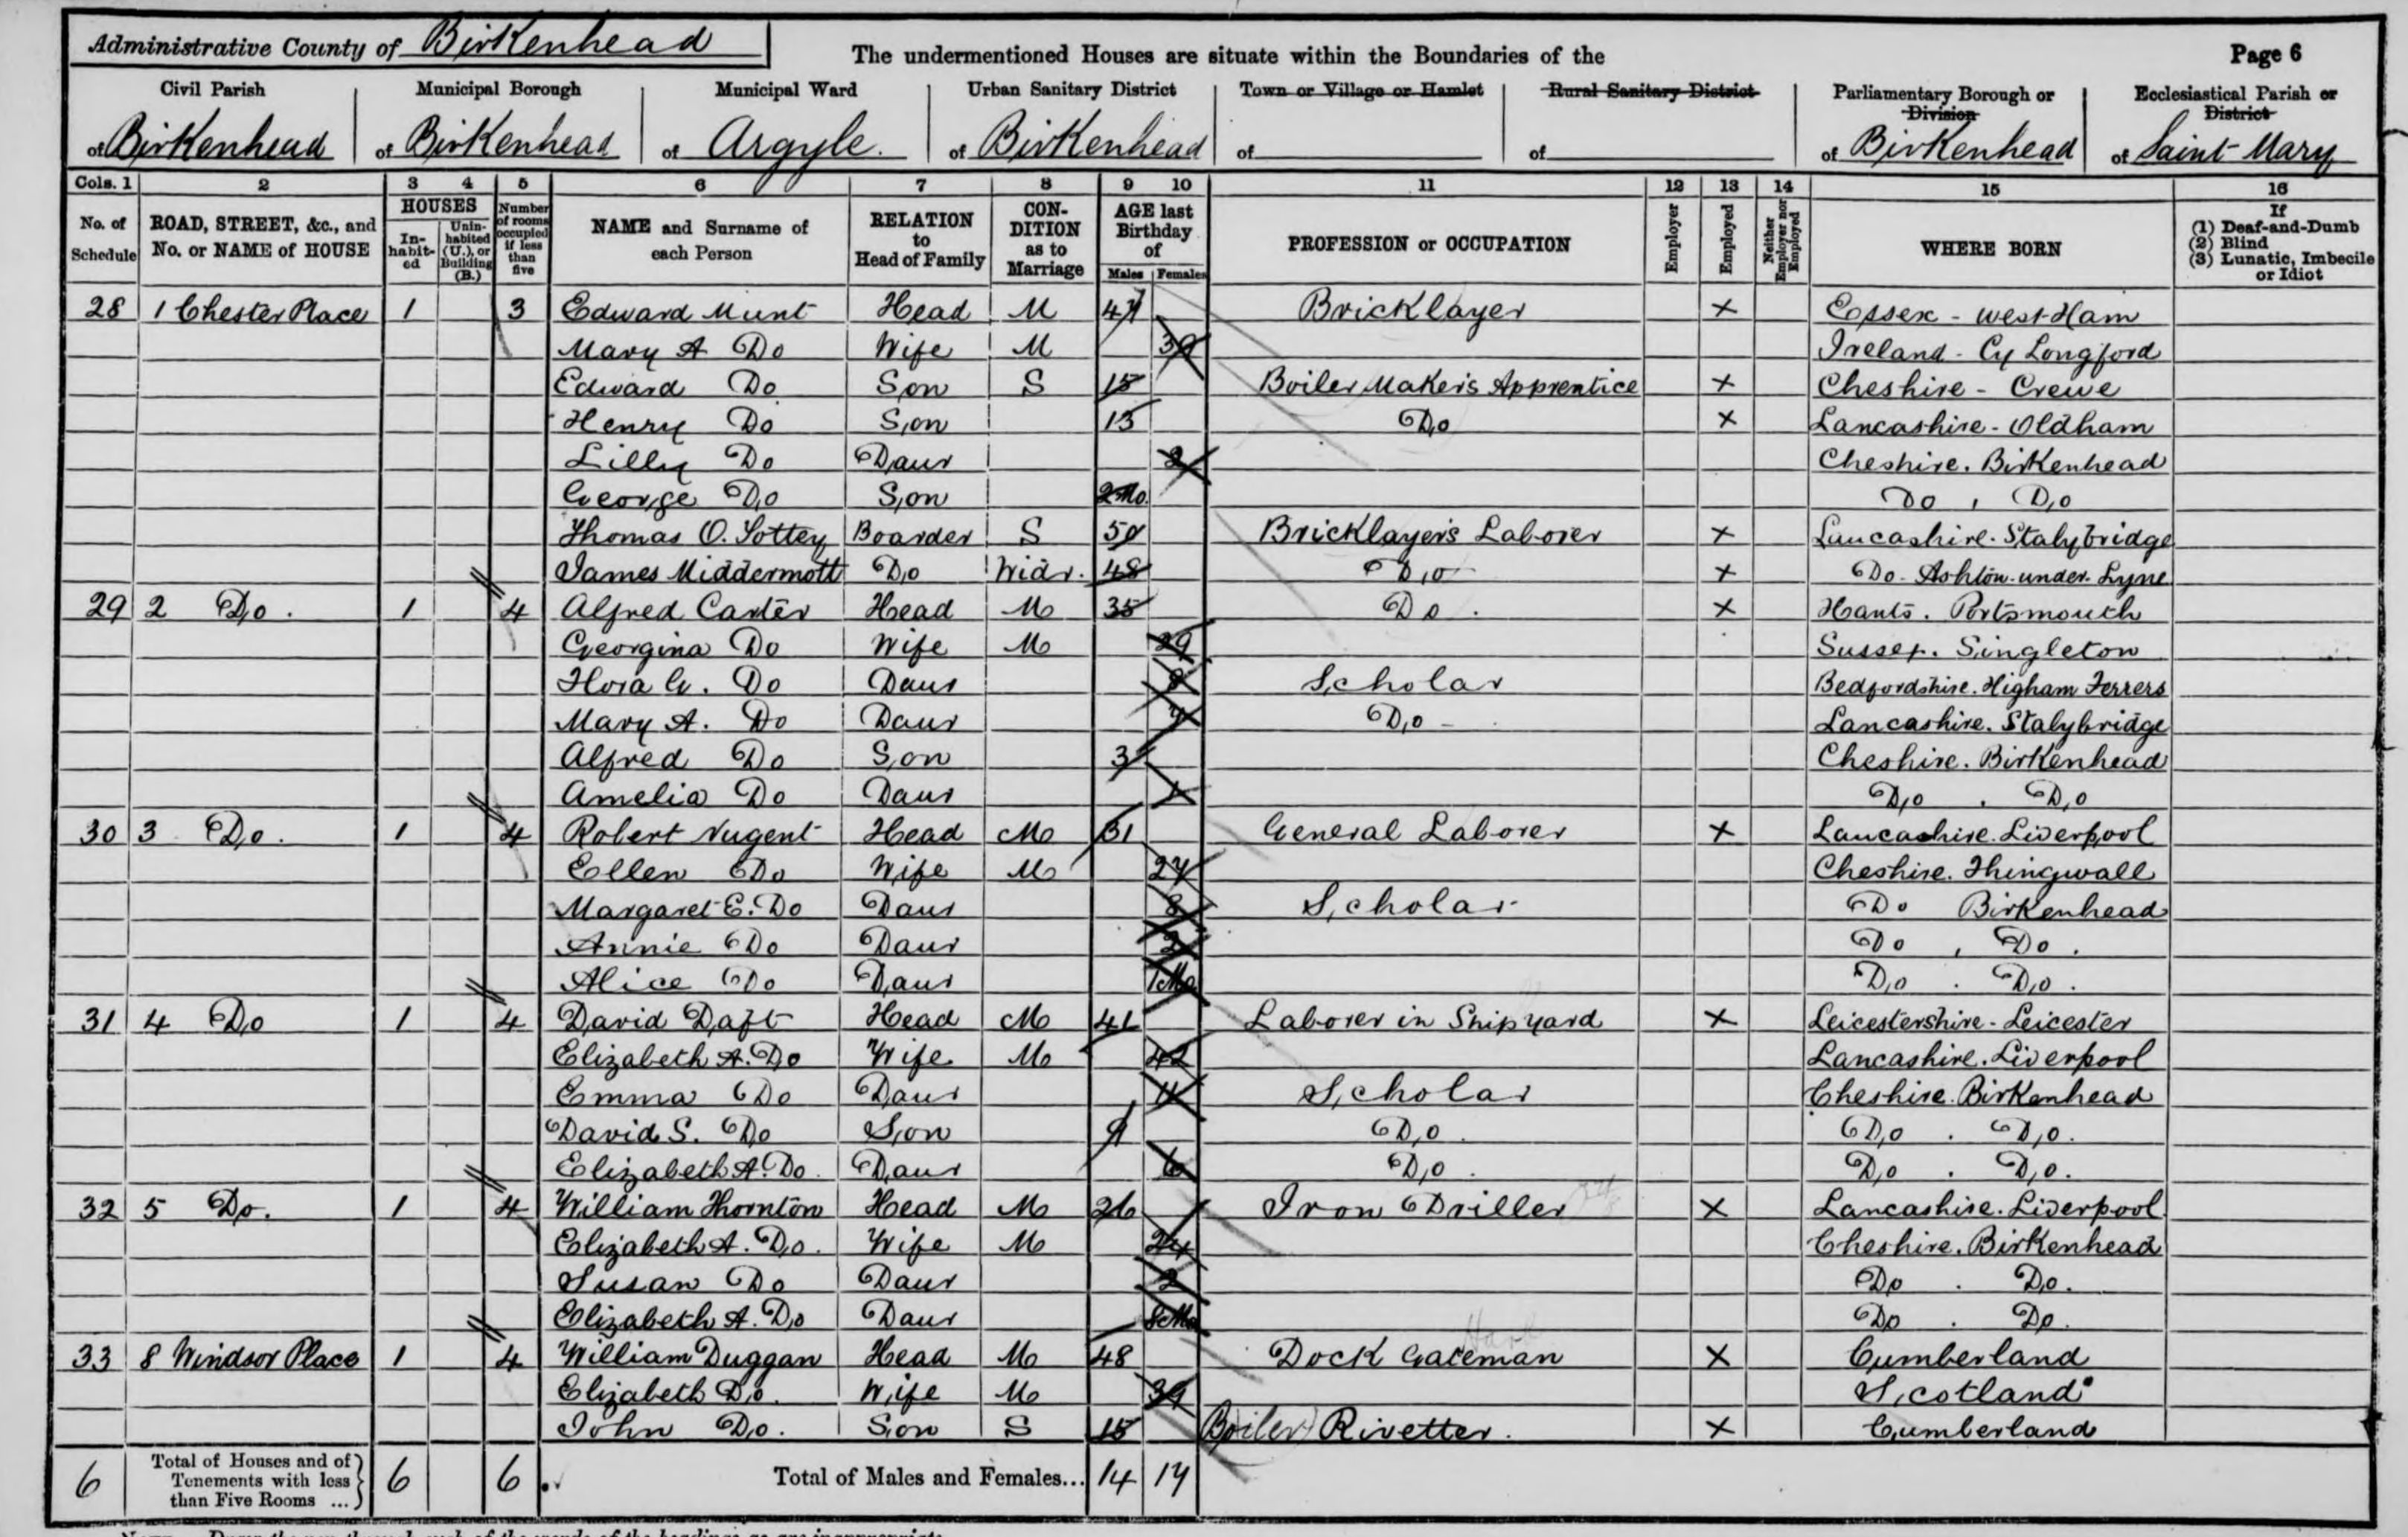 Administrative County of Birkenhead
The undermentioned Houses are situate within the Boundaries of the
Page 6
Civil Parish of Birkenhead
Municipal Borough of Birkenhead
Municipal Ward of Argyle.
Urban Sanitary District of Birkenhead
Town or Village or Hamlet of
Rural Sanitary District of
Parliamentary Borough or Division of Birkenhead
Ecclesiastical Parish or District of Saint Mary
Cols. 1 2 3 4 5 6 7 8 9 10 11 12 13 14 15 16
No. of Schedule
ROAD, STREET, &c., and No. or NAME of HOUSE
HOUSES
In-habit-ed
Unin-habited (U.), or Building (B.)
Number of rooms occupied if less than five
NAME and Surname of each Person
RELATION to Head of Family
CON-DITION as to Marriage
AGE last Birthday of
Males Females
PROFESSION or OCCUPATION
Employer
Employed
Neither Employer nor Employed
WHERE BORN
If
(1) Deaf-and-Dumb
(2) Blind
(3) Lunatic, Imbecile or Idiot
28 1 Chester Place 1 3 Edward Munt Head M 47 Bricklayer X Essex - West Ham
Mary A Do Wife M 39 Ireland - Cy Longford
Edward Do Son S 15 Boiler Maker's Apprentice X Cheshire - Crewe
Henry Do Son 13 Do X Lancashire - Oldham
Lilly Do Daur 2 Cheshire. Birkenhead
George Do Son 2 Mo. Do , Do
Thomas O. Boarder S 50 Bricklayer's Laborer X Lancashire. Stalybridge
James Middermott Do Widr. 48 Do X Do - Ashton-under-Lyne
29 2 Do. 1 4 Alfred Carter Head M 35 Do. X Hants. Portsmouth
Georgina Do Wife M 29 Sussex. Singleton
Flora G. Do Daur 8 Scholar Bedfordshire. Higham Ferrers
Mary A. Do Daur 7 Do - Lancashire. Stalybridge
Alfred Do Son 3 Cheshire. Birkenhead
Amelia Do Daur 1 Do . Do
30 3 Do. 1 4 Robert Nugent Head M 31 General Laborer X Lancashire. Liverpool
Ellen Do Wife M 27 Cheshire. Thingwall
Margaret E. Do Daur 8 Scholar Do Birkenhead
Annie Do Daur 2 Do , Do.
Alice Do Daur 1 Mo Do . Do.
31 4 Do 1 4 David Daft Head M 41 Laborer in Ship Yard X Leicestershire - Leicester
Elizabeth A. Do Wife M 42 Lancashire. Liverpool
Emma Do Daur 11 Scholar Cheshire. Birkenhead
David S. Do Son 9 Do. Do . Do.
Elizabeth A. Do. Daur 6 Do. Do . Do.
32 5 Do. 1 4 William Thornton Head M 26 Iron Driller X Lancashire. Liverpool
Elizabeth A. Do. Wife M 24 Cheshire. Birkenhead
Susan Do Daur 2 Do . Do.
Elizabeth A. Do Daur 8 Mo Do . Do.
33 8 Windsor Place 1 4 William Duggan Head M 48 Dock Gateman X Cumberland
Elizabeth Do. Wife M 39 Scotland
John Do. Son S 15 Boiler Rivetter. X Cumberland
6 Total of Houses and of Tenements with less than Five Rooms ... 6 6 Total of Males and Females... 14 17